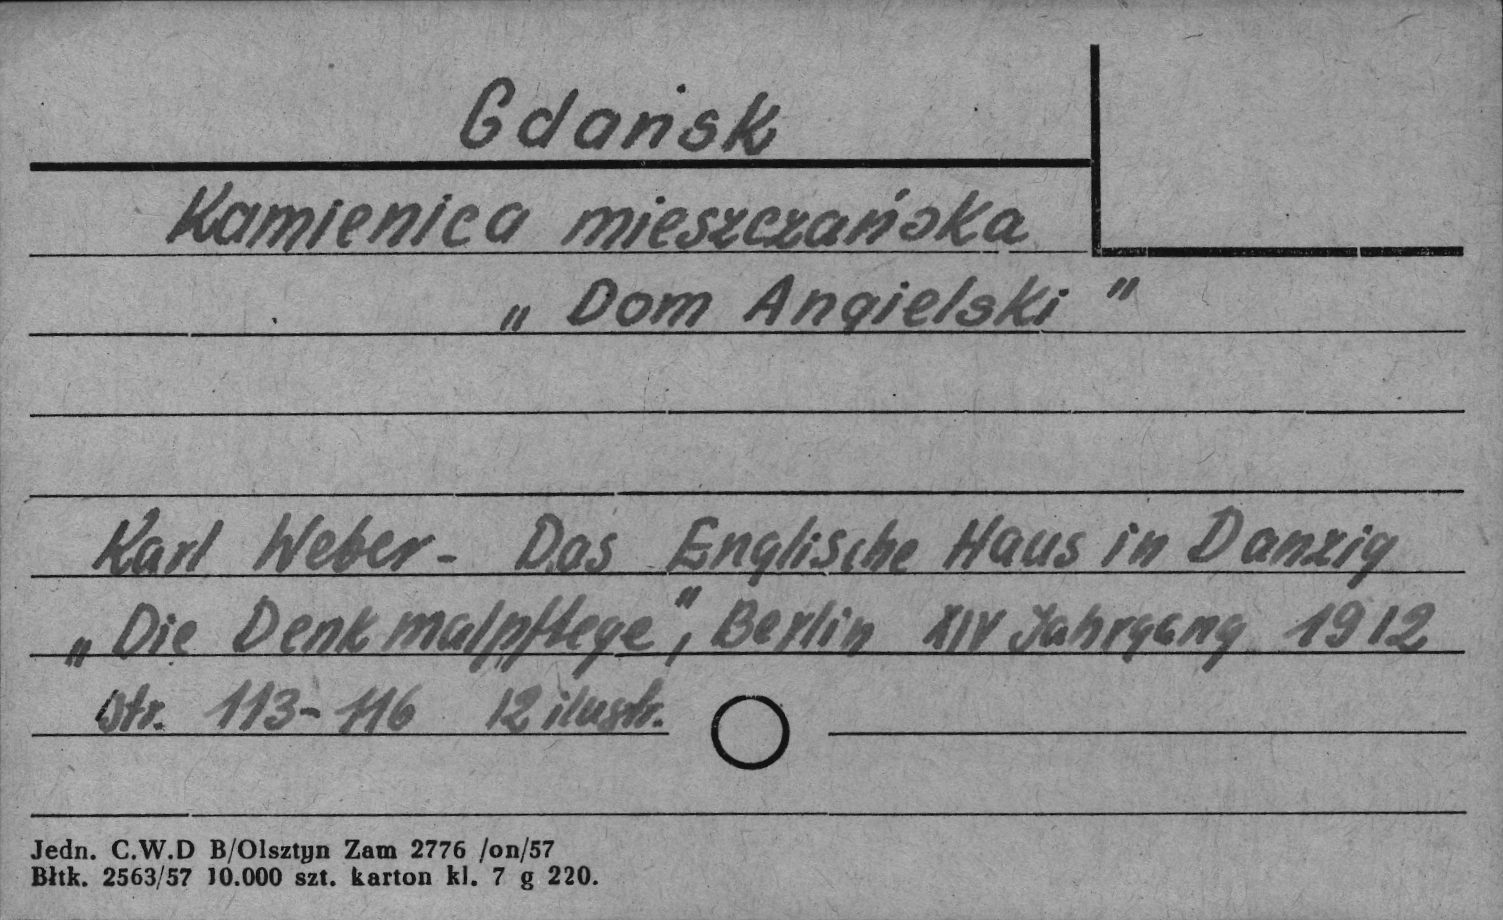 Gdańsk
Kamienica mieszczańska
„Dom Angielski"
Karl Weber - Das Englische Haus in Danzig
„Die Denkmalpflege", Berlin XIV Jahrgang 1912
str. 113-116 12 ilustr.
Jedn. C.W.D B/Olsztyn Zam 2776 /on/57
Błtk. 2563/57 10.000 szt. karton kl. 7 g 220.